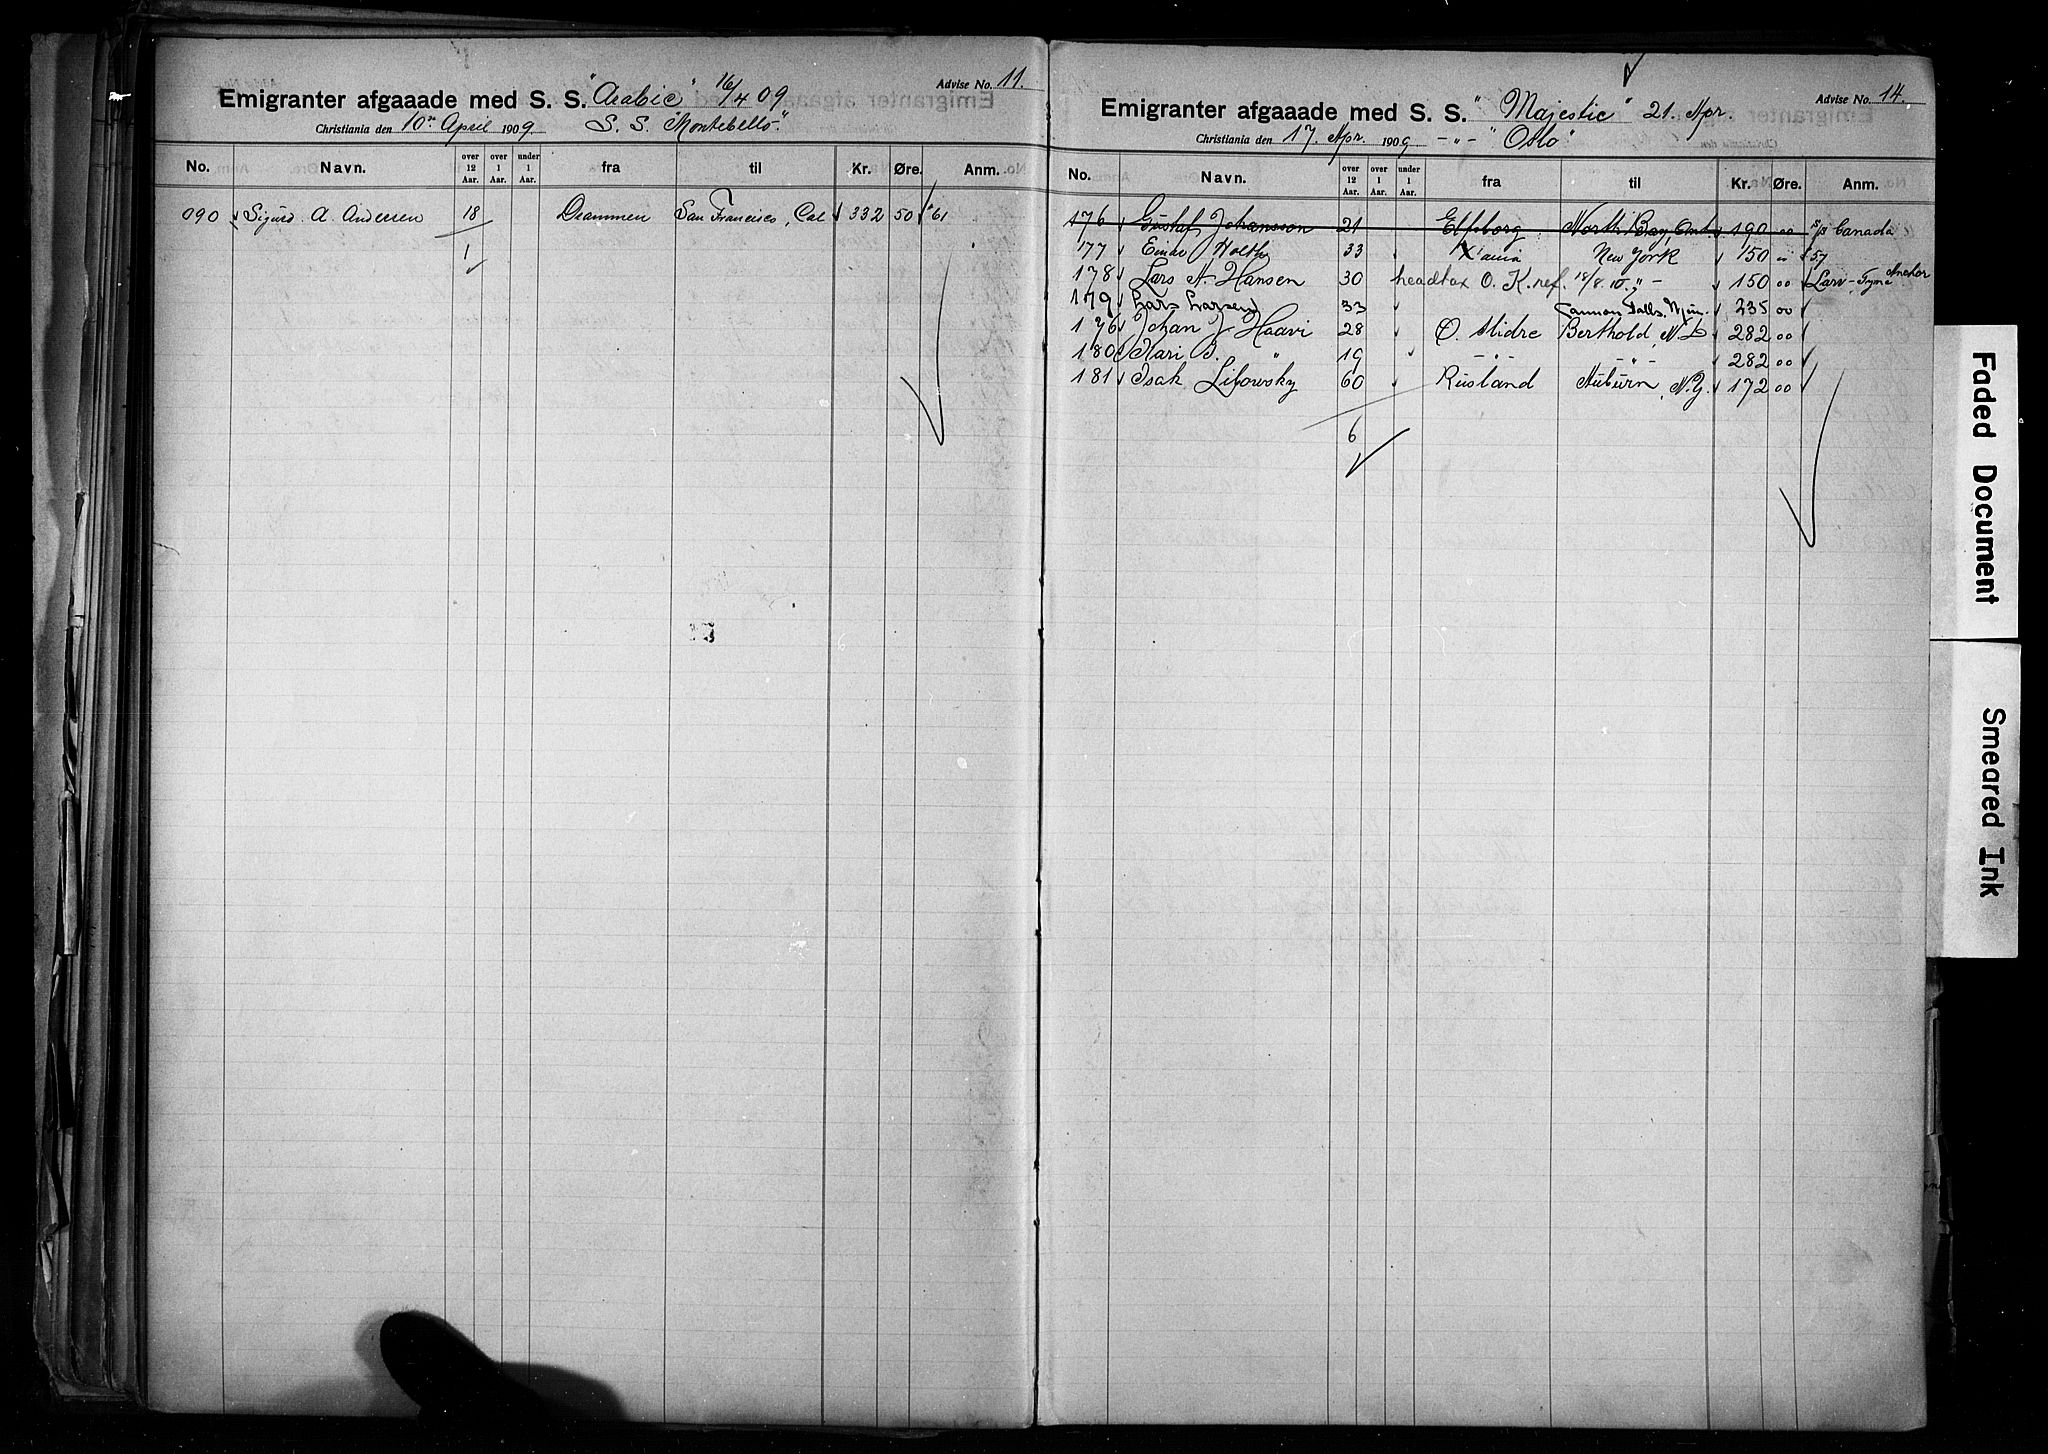 Advise No. 11.
Emigranter afgaaade med S. S. "Arabic" 16/4 09
Christiania den 10de April 1909 S. S. "Montebello".
No. Navn. over 12 Aar. over 1 Aar. under 1 Aar. fra til Kr. Øre. Anm.
090 Sigurd A. Andersen 18 Drammen San Francisco, Cal 332 50 61
1
Advise No. 14.
Emigranter afgaaade med S. S. "Majestic" 21. Apr.
Christiania den 17. Apr. 1909 -"- "Oslo"
No. Navn. over 12 Aar. over 1 Aar. under 1 Aar. fra til Kr. Øre. Anm.
176 Gustaf Johansson 21 Elfsborg North Bay, Ont 190 00 S/S Canada
177 Einar Holth 33 X'ania New York 150 " 57
178 Lars A. Hansen 30 headtax O. K. ref. 18/8.10. " - 150 00 Larv-Tyne Anchor
179 Lars Larsen 33 Cannon Falls, Min. 235 00
176 Johan J. Haavi 28 Ø. Slidre Berthold, N.D 282 00
180 Kari B. " 19 -"- -"- 282 00
181 Isak Libowsky 60 Rusland Auburn, N.Y. 172 00
6
Faded Document
Smeared Ink